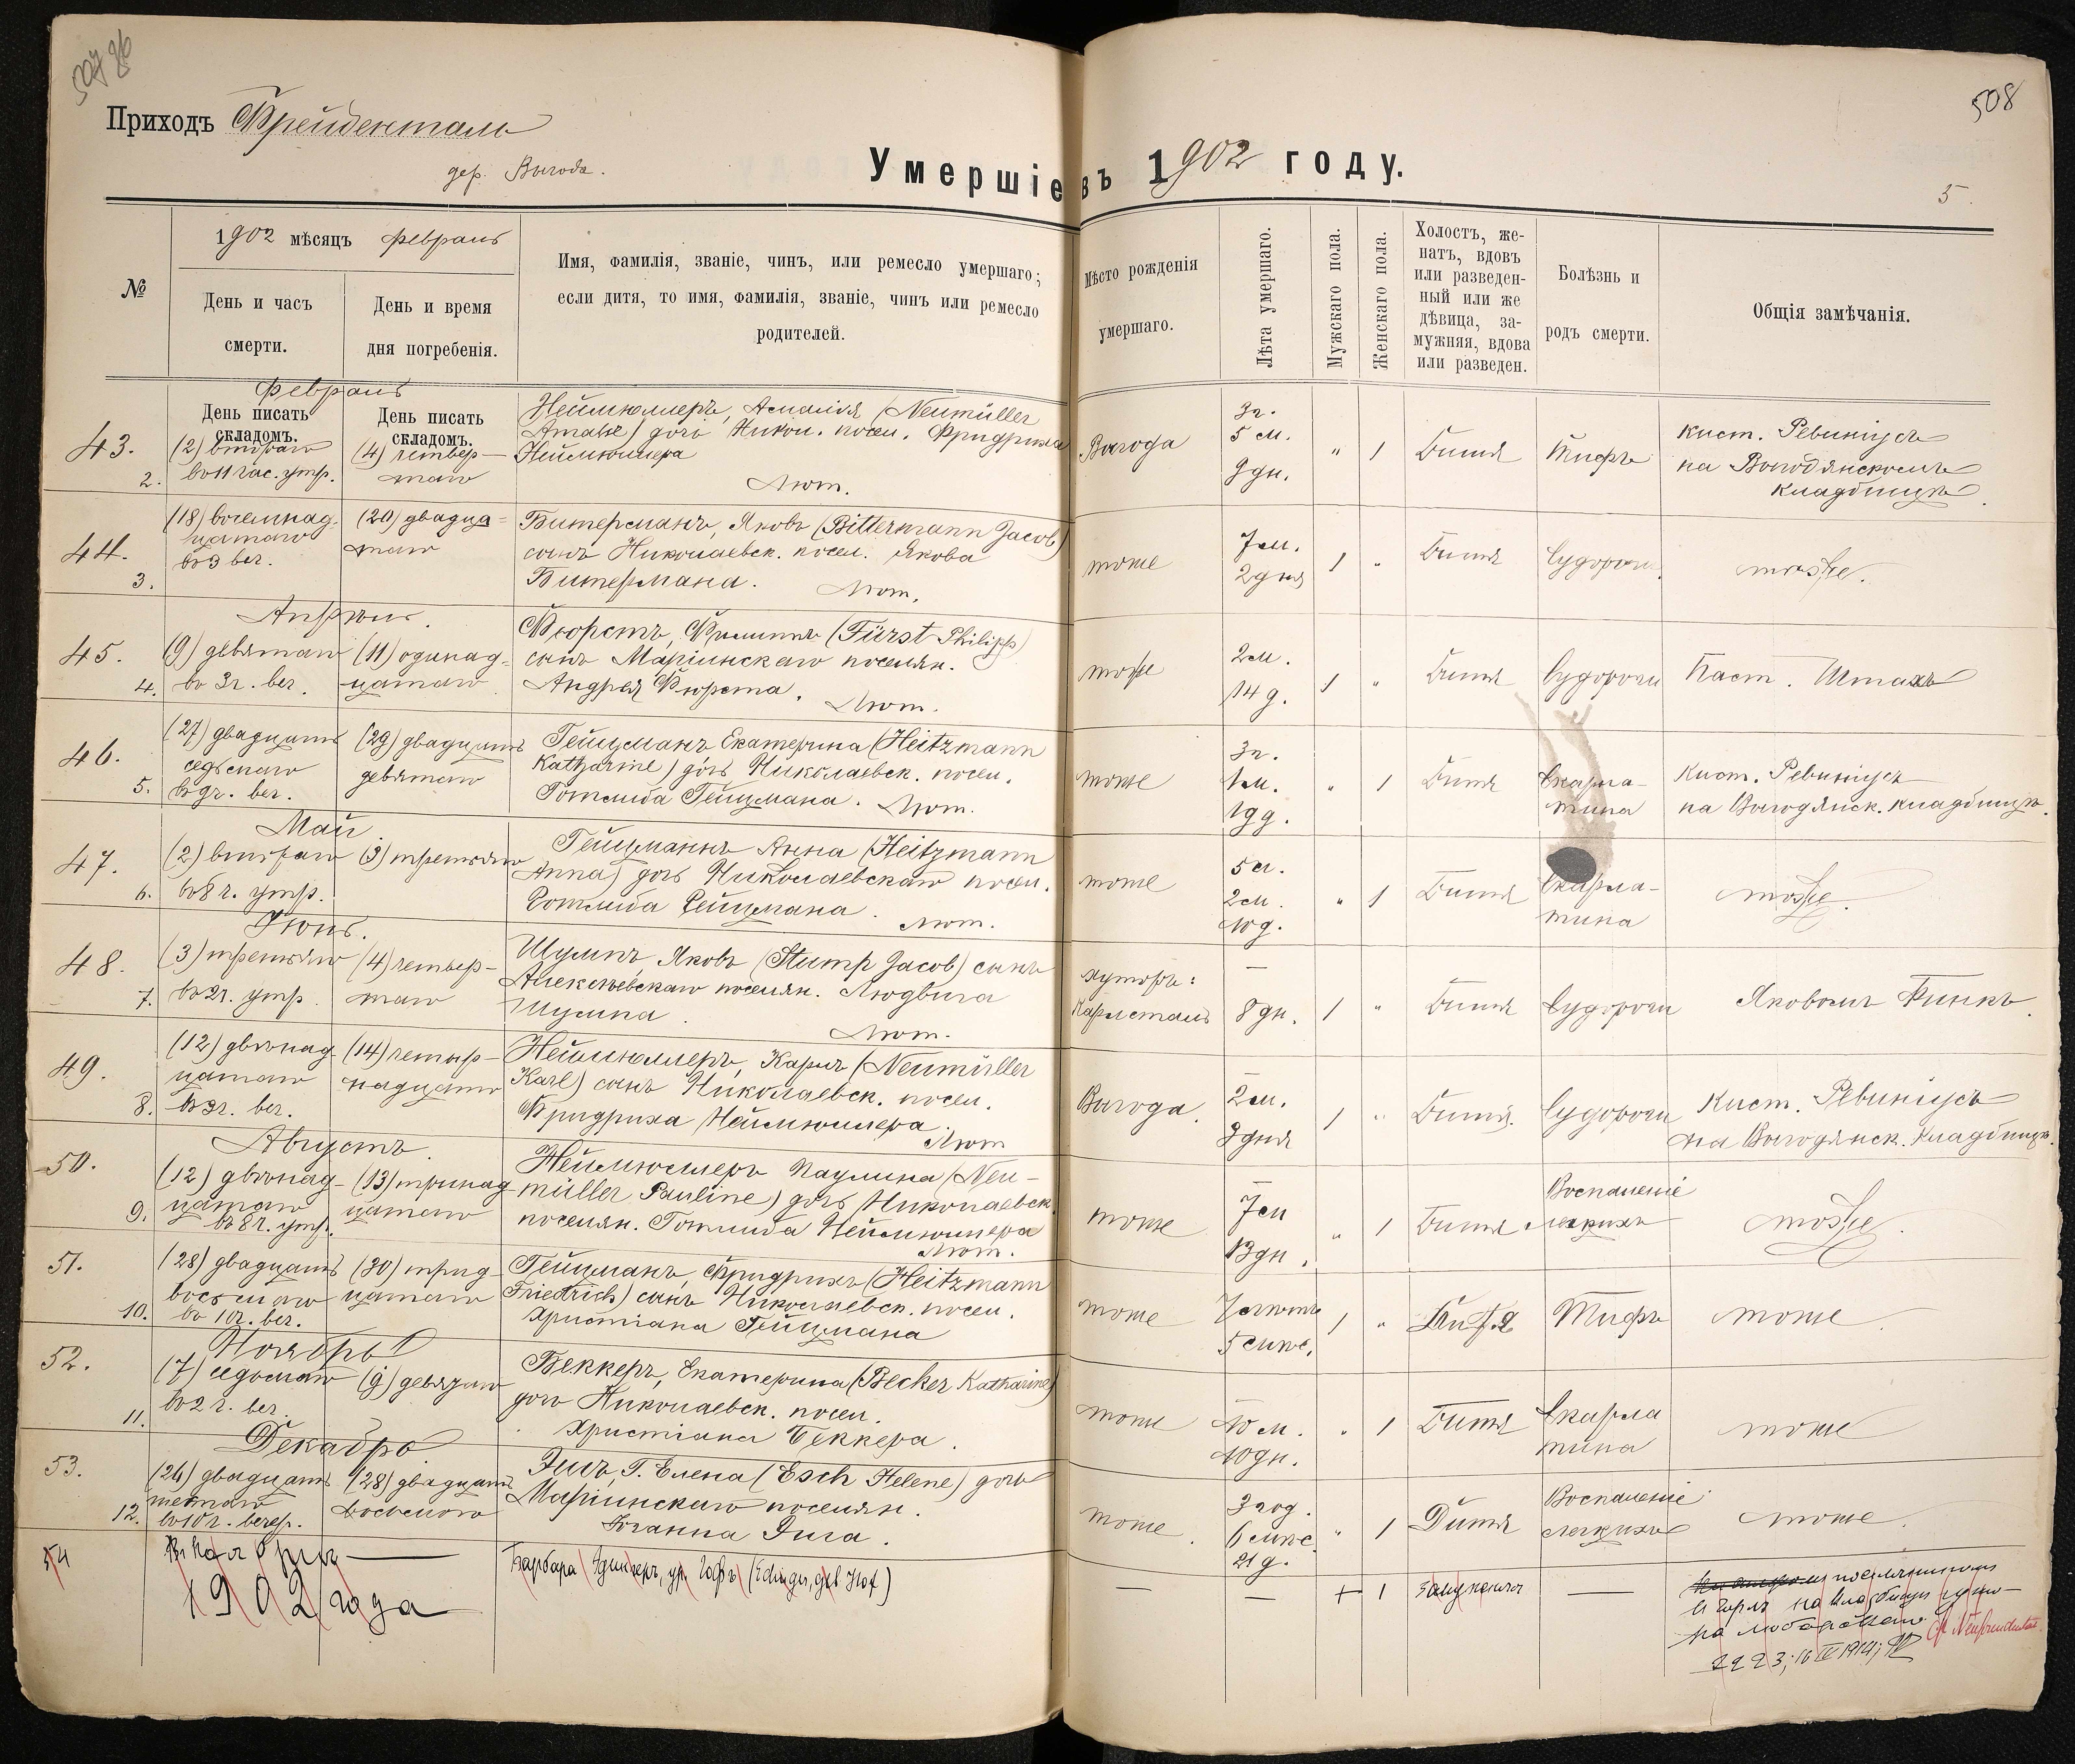 507
Приходъ Фрейденталь
дер. Выгода.
508
Умершіе въ 1902 году.
5
№
1902 мѣсяцъ февраль
День и часъ смерти.
День и время дня погребенія.
Имя, фамилія, званіе, чинъ, или ремесло умершаго;
если дитя, то имя, фамилія, званіе, чинъ или ремесло
родителей.
Мѣсто рожденія
умершаго.
Лѣта умершаго.
Мужскаго пола.
Женскаго пола.
Холостъ, же-
натъ, вдовъ
или разведен-
ный или же
дѣвица, за-
мужняя, вдова
или разведен.
Болѣзнь и
родъ смерти.
Общія замѣчанія.
Февраль
День писать складомъ.
День писать складомъ.
43.
2.
(2) втораго
во 11 час. утр.
(4) четвер-
таго
Неймюллеръ, Амалія (Neumüller
Amalie) дочь Никол. посел. Фридриха
Неймюллера
Лют.
Выгода
3 г.
5 м.
9 дн.
" 1
Дитя
Тифъ
Кист. Ревиніусъ
на Выгодянскомъ
кладбищѣ
44.
3.
(18) восемнад-
цатаго
в 3 веч.
(20) двадца-
таго
Битерманъ, Яковъ (Bittermann Jacob)
сынъ Николаевск. посел. Якова
Битермана.
Лют.
тоже
7 м.
2 дня
1 "
Дитя
Судороги
тоже.
Апрѣль.
45.
4.
(9) девятаго
во 3 ч. веч.
(11) одинад-
цатаго
Фюрстъ, Филиппъ (Fürst Philipp)
сынъ Маріинскаго поселян.
Андрея Фюрста.
Лют.
тоже
2 м.
14 д.
1 "
Дитя
Судороги
Паст. Штахъ
46.
5.
(27) двадцать
седьмаго
в 9 ч. веч.
(29) двадцать
девятаго
Гейцманъ Екатерина (Heitzmann
Katharine) дочь Николаевск. посел.
Готлиба Гейцмана. Лют.
тоже
3 г.
1 м.
19 д.
" 1
Дитя
Скарла-
тина
Кист. Ревиніусъ
на Выгодянск. кладбищѣ.
Май
47.
6.
(2) втораго
во 8 ч. утр.
(3) третьяго
Гейцманнъ Анна (Heitzmann
Anna) дочь Николаевскаго посел.
Готлиба Гейцмана.
Лют.
тоже
2 м.
10 д.
" 1
Дитя
Скарла-
тина
тоже.
Іюнь.
48.
7.
(3) третьяго
во 2 ч. утр.
(4) четвер-
таго
Штумпъ, Яковъ (Stump Jacob) сынъ
Алексѣевскаго поселян. Людвига
Штумпа.
Лют.
хуторъ:
Карлсталь
8 дн.
1 "
Дитя
Судороги
Яковомъ Финкъ.
49.
8.
(12) двѣнад-
цатаго
в 3 ч. веч.
(14) четыр-
надцатаго
Неймюллеръ, Карлъ (Neumüller
Karl) сынъ Николаевск. посел.
Фридриха Неймюллера.
Лют
Выгода.
2 м.
3 дня
1 "
Дитя.
Судороги
Кист. Ревиніусъ
на Выгодянск. кладбищѣ.
Августъ.
50.
9.
(12) двѣнад-
цатаго
в 8 ч. утр.
(13) тринад-
цатаго
Неймюллеръ Паулина (Neu-
müller Pauline) дочь Николаевск.
поселян. Готлиба Неймюллера
Лют.
тоже
7 м
13 дн.
" 1
Дитя
Воспаленіе
легкихъ
тоже.
51.
10.
(28) двадцать
восьмаго
во 10 ч. веч.
(30) трид-
цатаго
Гейцманъ, Фридрихъ (Heitzmann
Friedrich) сынъ Николаевск. посел.
Христіана Гейцмана
тоже
5 мѣс.
1 "
Дитя
Тифъ
тоже.
Ноябрь
52.
11.
(7) седьмаго
во 2 ч. веч.
(9) девятаго
Беккеръ, Екатерина (Becker Katharine)
дочь Николаевск. посел.
Христіана Беккера.
тоже
10 м.
10 дн.
" 1
Дитя
Скарла
тина
тоже
Декабрь
53.
12.
(26) двадцать
шестаго
во 10 ч. вечер.
(28) двадцать
восьмаго
Эшъ, Г. Елена (Esch Helene) дочь
Маріинскаго поселян.
Іоганна Эша.
тоже.
3 год.
6 мѣс.
21 д.
" 1
Дитя
Воспаленіе
легкихъ
тоже.
54
1902 года
Барбара Эдингеръ, ур. Гофъ (Edinger, geb Hof)
—
—
+ 1
замужняя
—
на кладбищѣ